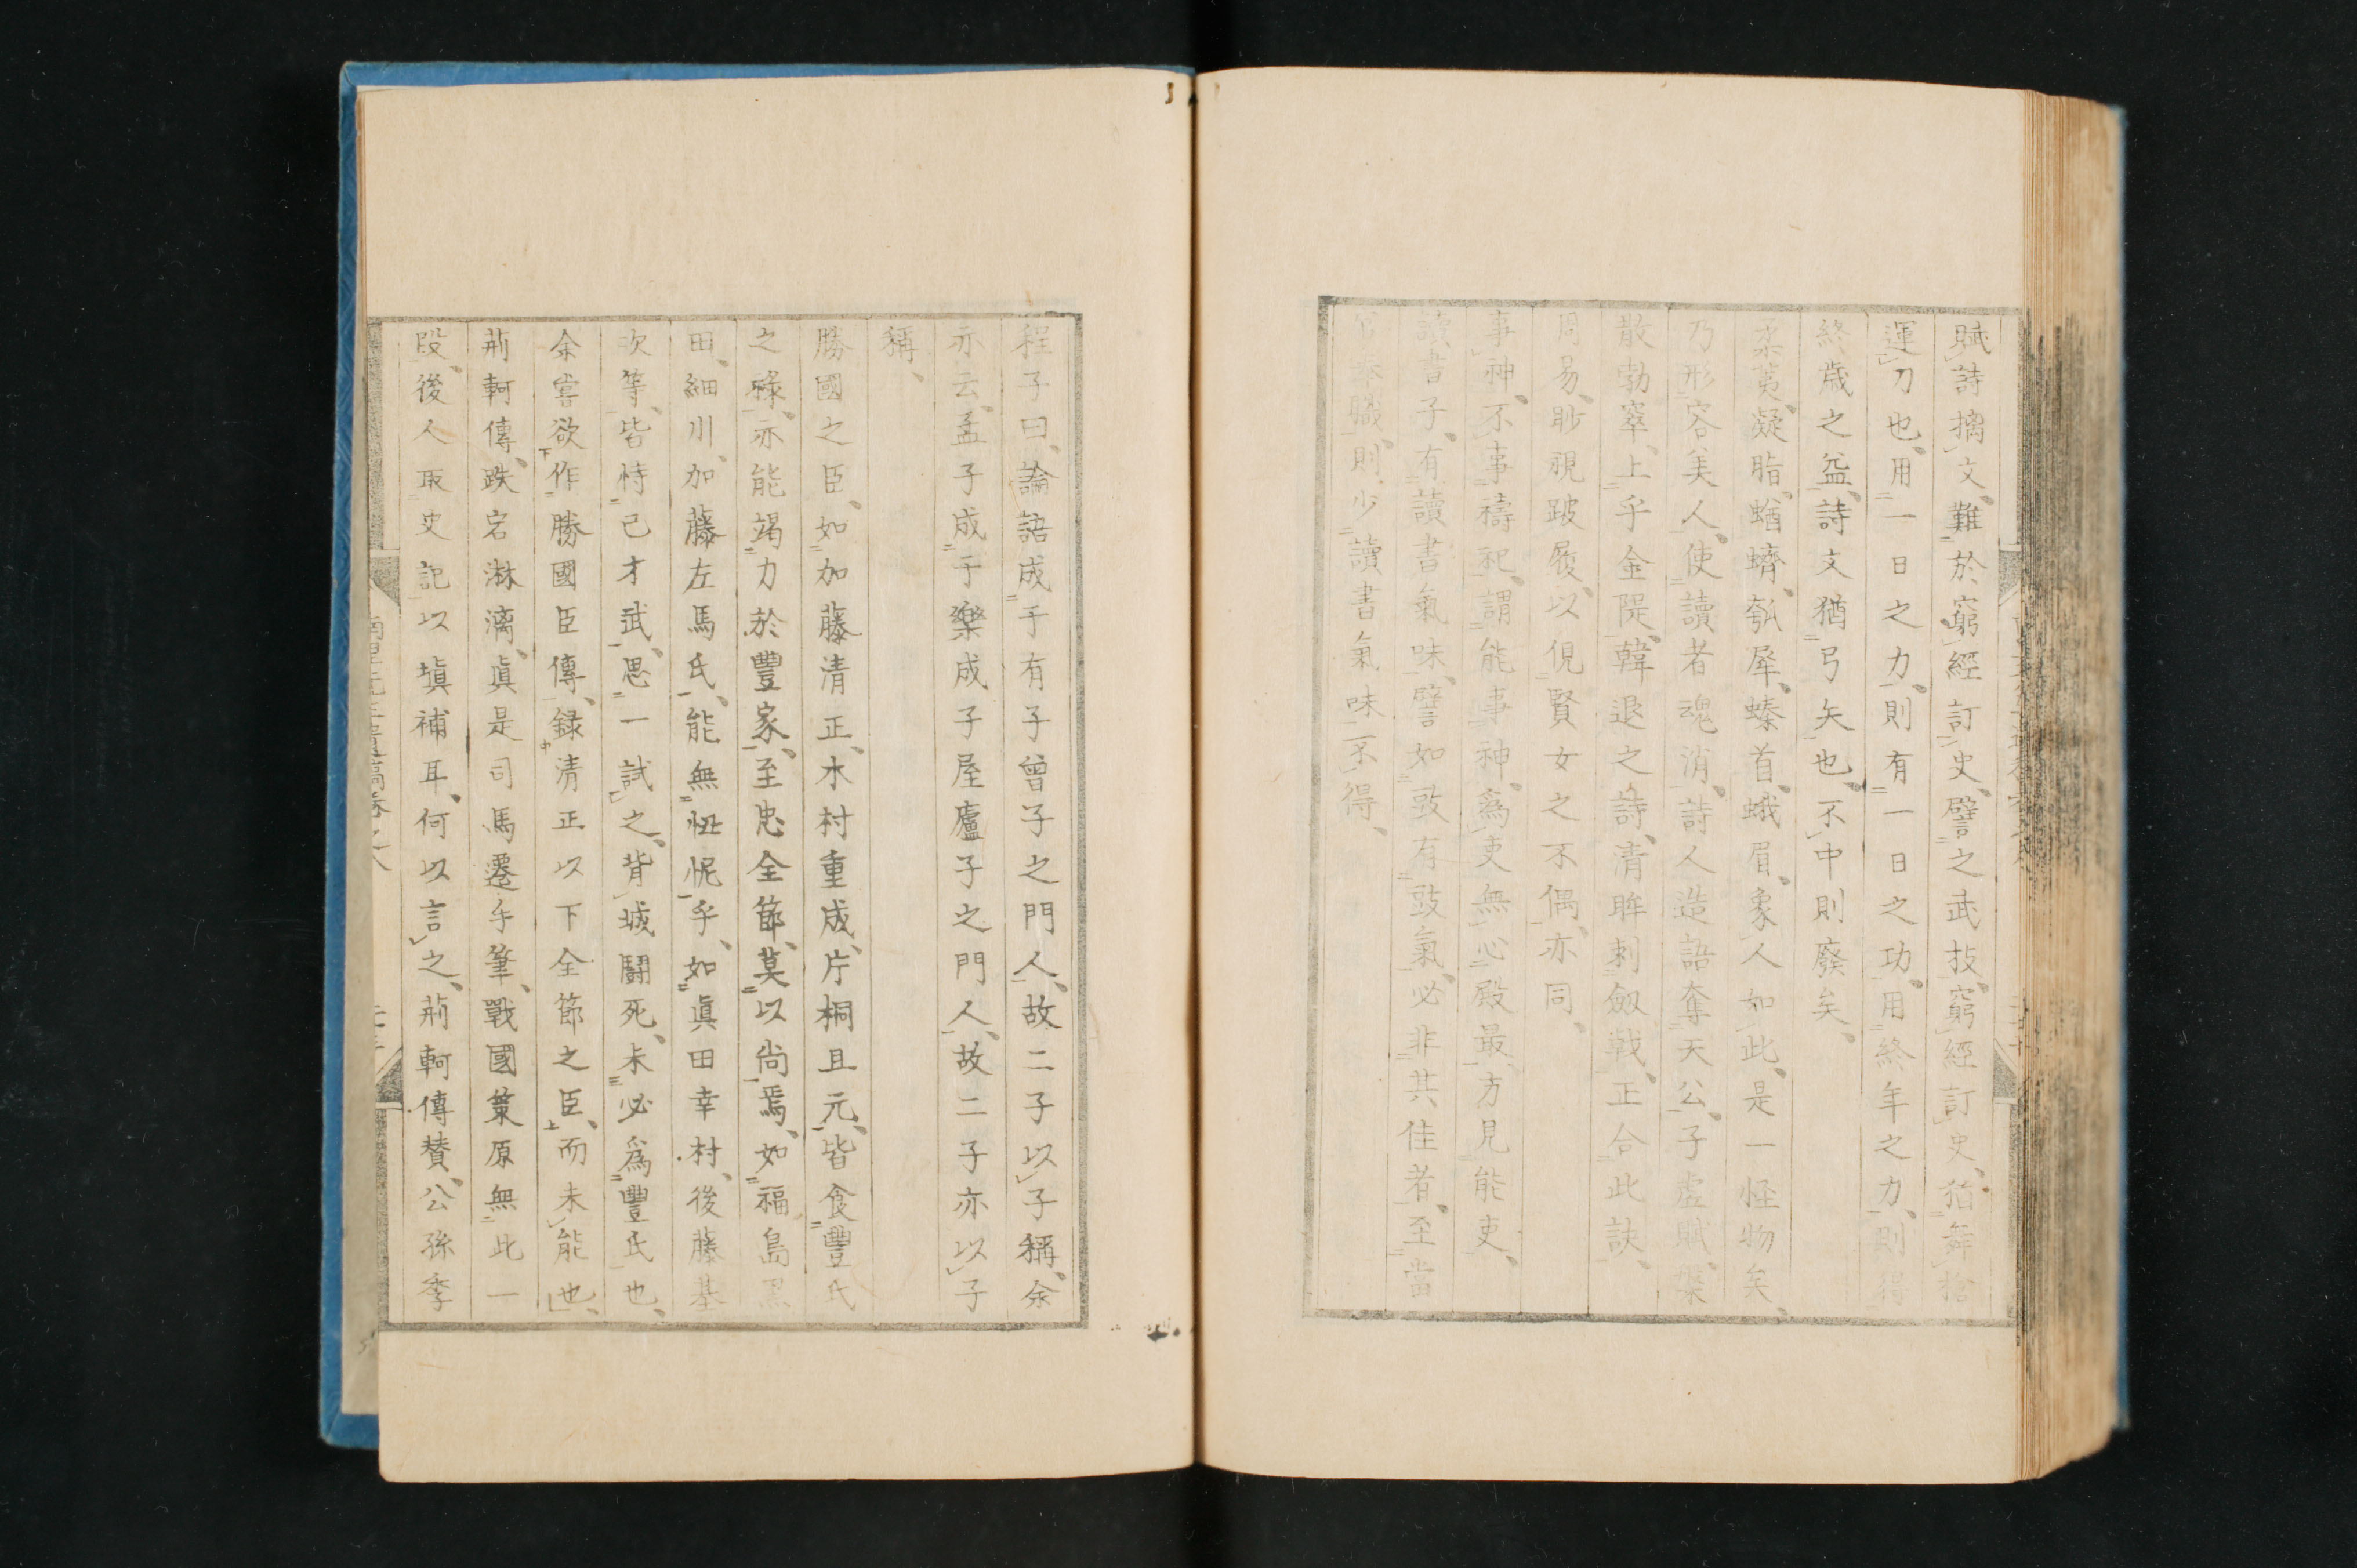 賦詩摛文、難於窮經訂史、譬之武技、窮經訂史、猶舞搶
運刀也、用一日之力、則有一日之功、用終年之力、則得
終歳之益、詩文猶弓矢也、不中則廢矣、
柔荑、凝脂、蝤蠐、瓠犀、螓首、蛾眉、象人如此、是一怪物矣、
乃形容美人、使讀者魂消、詩人造語奪天公、子虚賦、槃
散勃窣、上乎金隄、韓退之詩、清眸刺劔戟、正合此訣、
周易、眇視跛履、以俔賢女之不偶、亦同、
事神、不事禱祀、謂能事神、爲吏無心殿最、方見能吏、
讀書子、有讀書氣味、譬如豉有豉氣、必非其佳者、至當
職、則少讀書氣味不得、
程子曰、論語成于有子曾子之門人、故二子以子稱、余
亦云、孟子成于樂成子屋廬子之門人、故二子亦以子
稱、
勝國之臣、如加藤清正、木村重成、片桐且元、皆食豐氏
之祿、亦能竭力於豐家、至忠全節、莫以尚焉、如福島黒
田、細川、加藤左馬氏、能無忸怩乎、如眞田幸村、後藤基
次等、皆恃己才武、思一試之、背城鬪死、未必爲豐氏也、
余嘗欲作勝國臣傳、録清正以下全節之臣、而未能也、
荊軻傳、跌宕淋漓、眞是司馬遷手筆、戰國策原無此一
段、後人取史記以塡補耳、何以言之、荊軻傳賛、公孫季